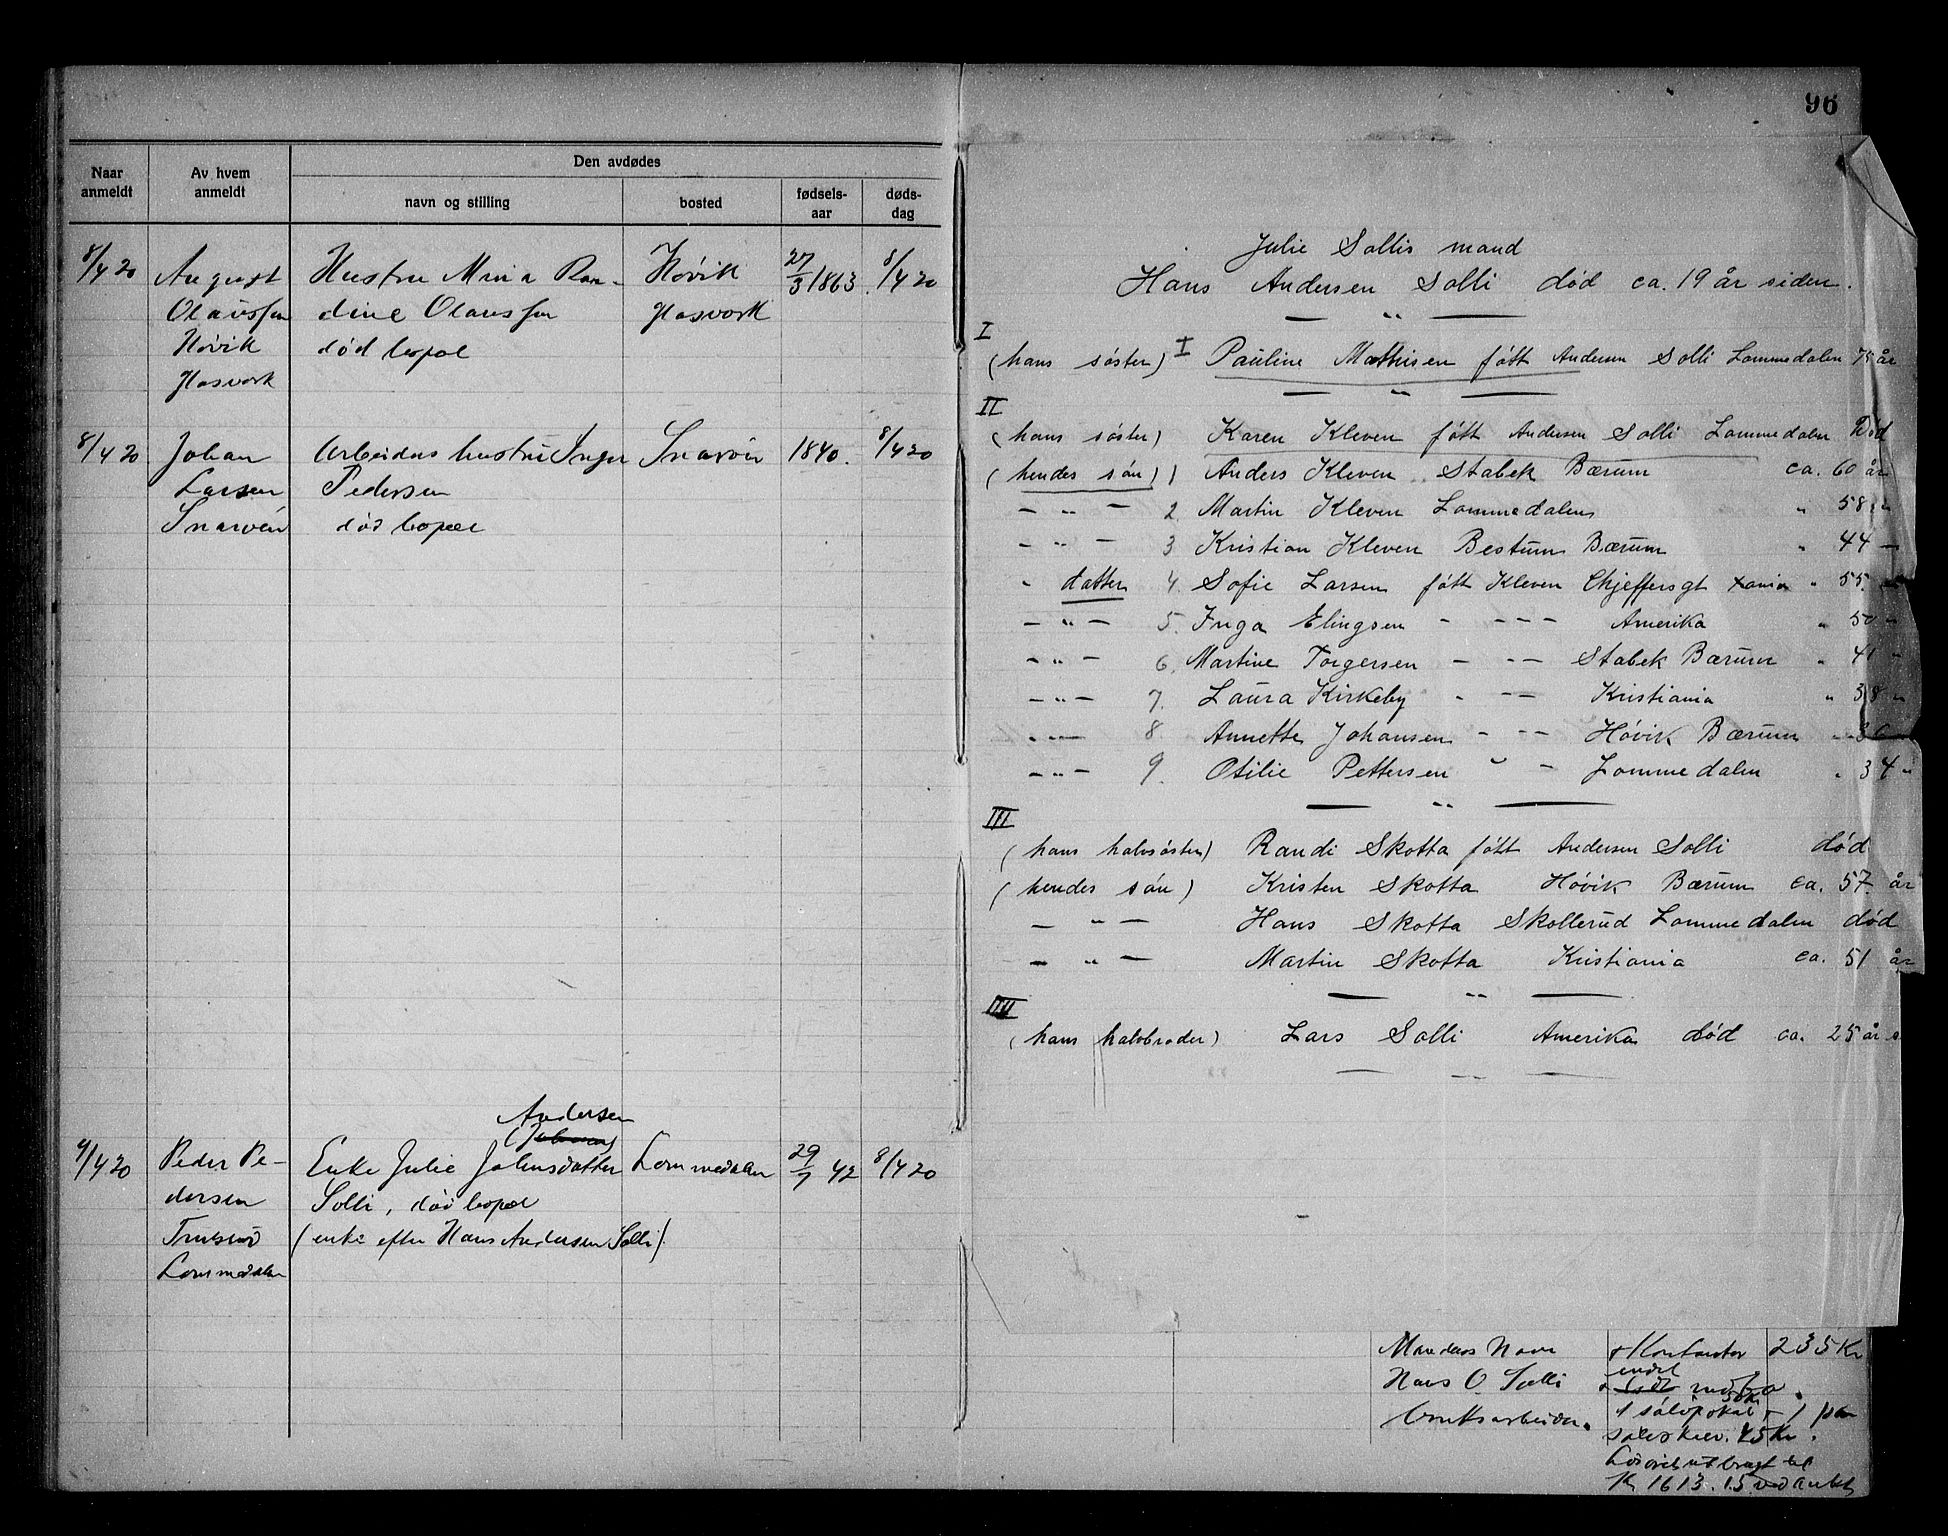 96
Naar anmeldt
Av hvem anmeldt
Den avdødes
navn og stilling
bosted
fødsels-aar
døds-dag
8/4 20
August
Olaussen
Høvik
Glasverk
Hustru Mina Ran-
dine Olaussen
død bopæl
Høvik
Glasverk
27/3 1863
8/4 20
8/4 20
Johan
Larsen
Snarøen
Arbeiders hustru Inger
Pedersen
død bopæl
Snarøen
1840.
8/4 20
9/4 20
Peder Pe-
dersen
Lommedalen
Andersen
Enke Julie Johnsdatter
Solli, død bopæl
(enke efter Hans Andersen Solli)
Lommedalen
29/7 42
8/4 20
Julie Sollis mand
Hans Andersen Solli død ca. 19 år siden.
I
(hans søster) I Pauline Mathisen føtt Andersen Solli Lommedalen 75 år
II
(hans søster) Karen Kleven føtt Andersen Solli Lommedalen Død
(hendes søn) 1 Anders Kleven Stabek Bærum ca. 60 år
— " — 2. Martin Kleven Lommedalen " 58 "
— " — 3 Kristian Kleven Bestum Bærum " 44 —
" datter 4. Sofie Larsen føtt Kleven Chjeffersgt Xania " 55.
— " — 5. Inga Elingsen - - - - Amerika " 50 "
— " — 6. Martine Torgersen - - - Stabek Bærum " 41 "
— " — 7. Laura Kirkeby " - - Kristiania " 38 "
— " — 8 Annette Johansen - - - Høvik Bærum
— " — 9. Otilie Pettersen " - Lommedalen " 34 "
III
(hans halvsøster) Randi Skotta føtt Andersen Solli død
(hendes søn) Kristen Skotta Høvik Bærum ca. 57 år
— " — Hans Skotta Skollerud Lommedalen død
— " — Martin Skotta Kristiania ca. 51 år
IIII
(hans halvbroder) Lars Solli Amerika død ca. 25 år s
Mandens Navn
Hans O. Solli
Bruksarbeider.
235 Kr
1 sølvpokal + 1 par
45 Kr.
Løsøret utbragt til
Kr 1613.15 ved aukt